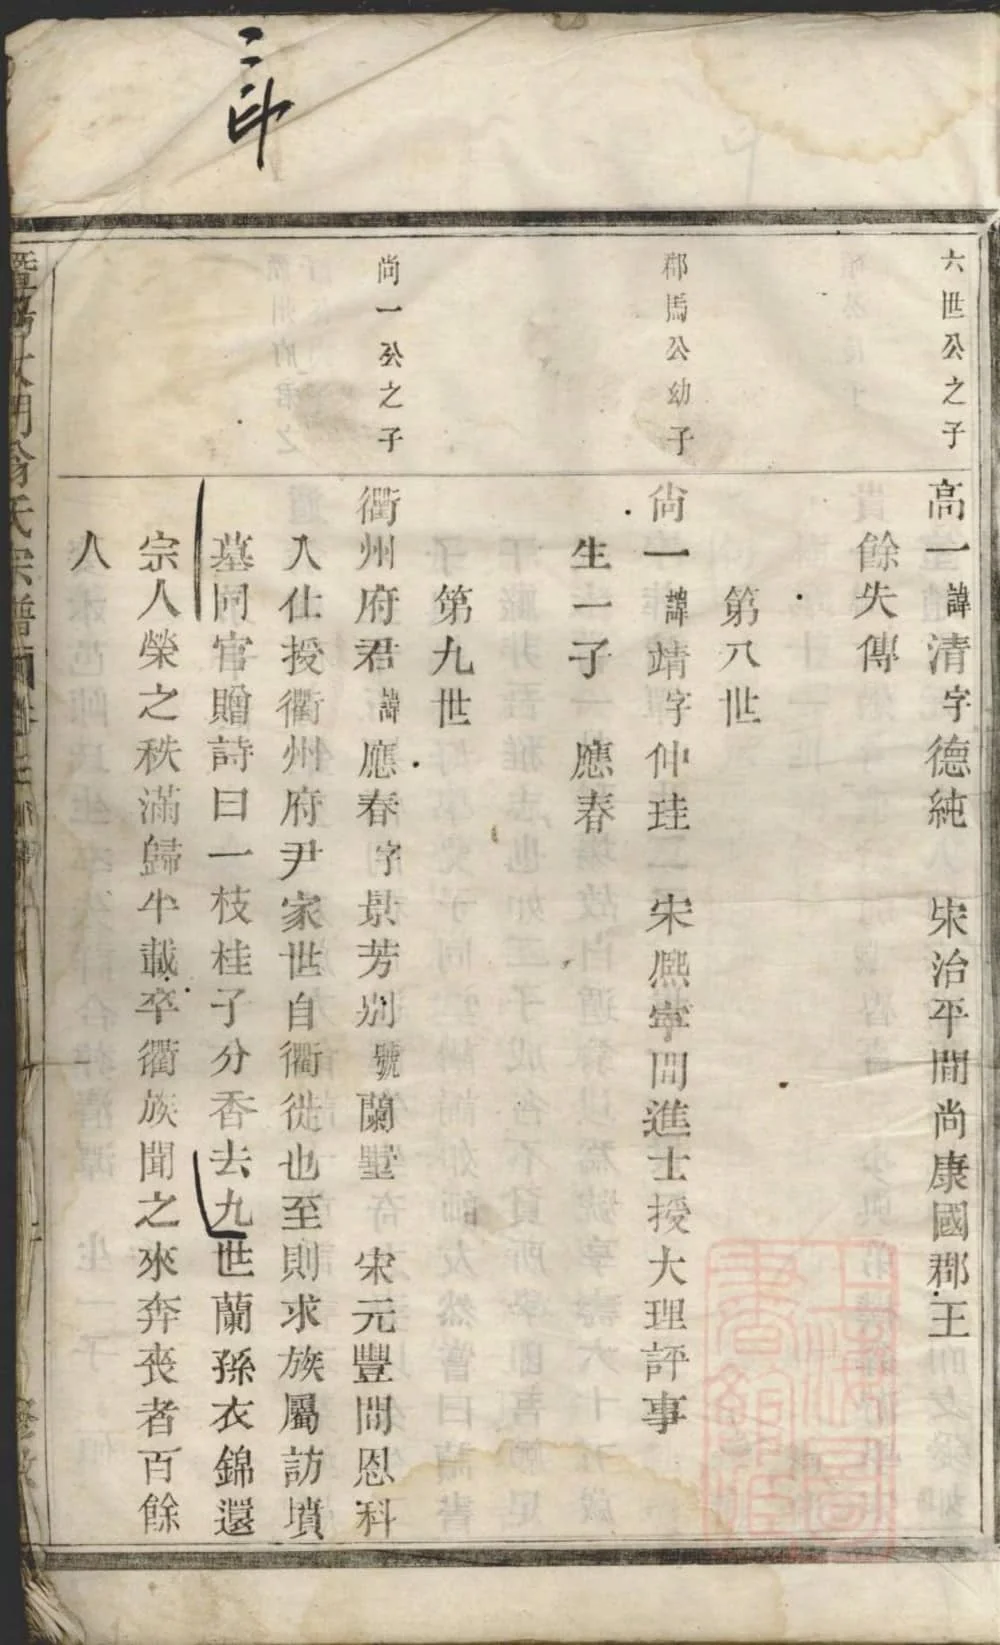 三印
六世公之子
高一諱清字德純　宋治平間尚康國郡王
餘失傳
第八世
郡馬公幼子
尙一諱靖字仲珪　宋熙寧間進士授大理評事
生一子　應春
第九世
尙一公之子
衢州府君諱應春字景芳别號蘭墅　宋元豐間恩科
入仕授衢州府尹家世自衢徙也至則求族屬訪墳
墓同官贈詩曰一枝桂子分香去九世蘭孫衣錦還
宗人榮之秩滿歸半載卒衢族聞之來奔喪者百餘
人